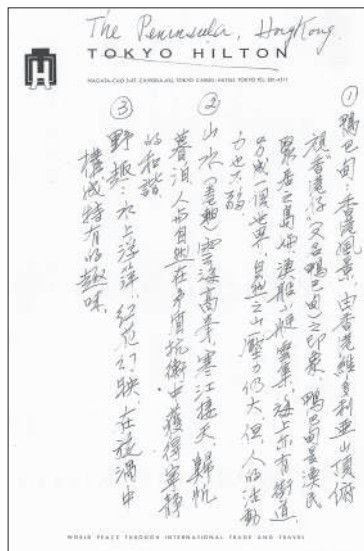 The Peninsula, HongKong.
TOKYO HILTON
NAGATA-CHO 2-CHOME, CHIYODA-KU, TOKYO
① 鴨巴甸:香港風景,由香港維多利亞山頂俯
視"香港仔"(又名鴨巴甸)之印象。鴨巴甸是漁民
聚居之島,漁船小艇雲集,海上亦有街道,
另成一個世界。自然之山壓力仍大,但人的活動
力也不弱。
② 山水(重興)雲深高峯,寒江接天,歸帆
暮泊,人與自然在矛盾抗衡中獲得寧靜
的和諧。
③ 野趣:水上浮萍,紅花幻映,在旋渦中
構成特有的趣味。
WORLD PEACE THROUGH INTERNATIONAL TRADE AND TRAVEL